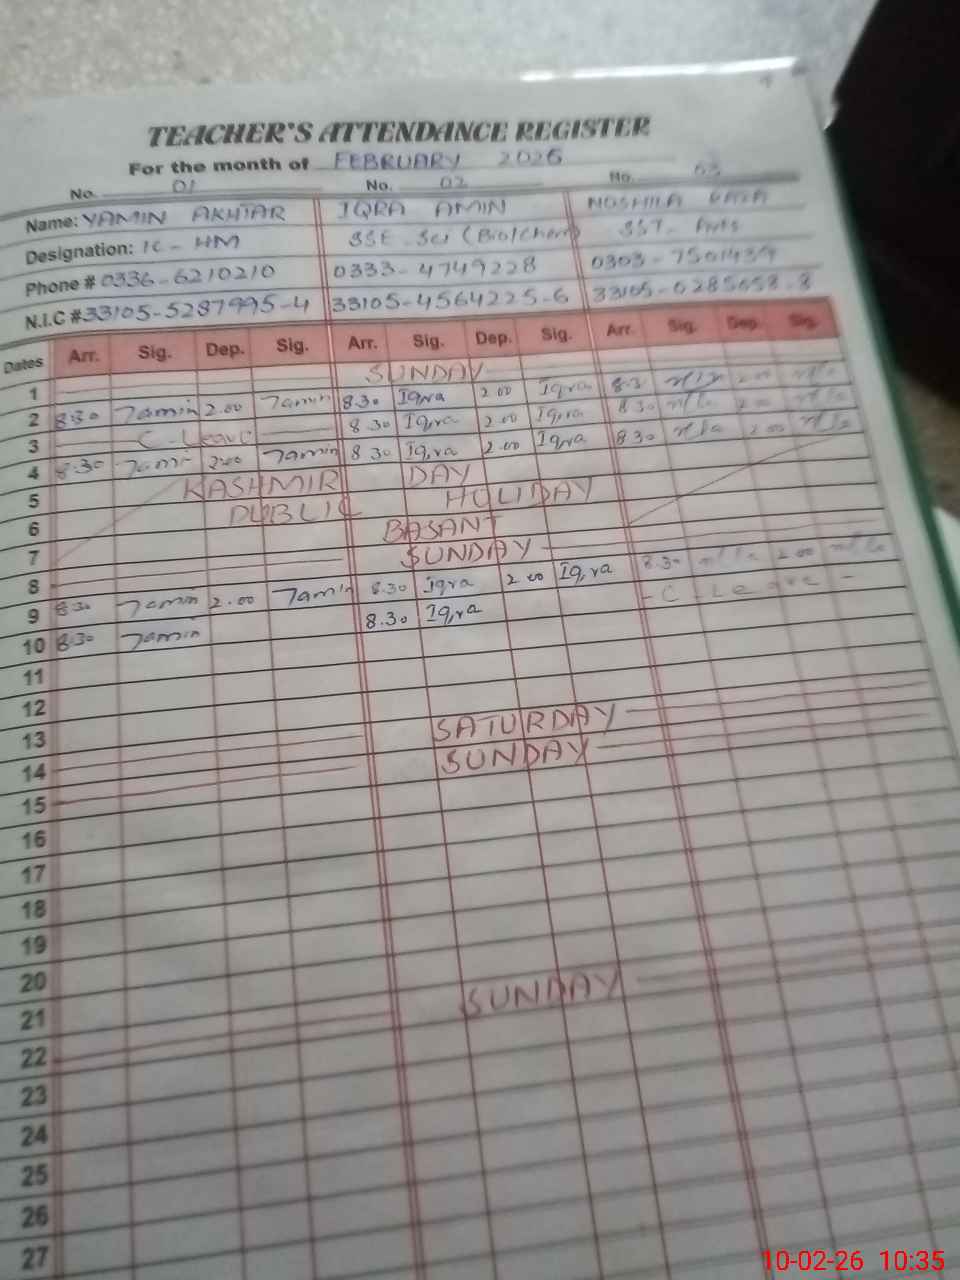 TEACHER'S ATTENDANCE REGISTER
For the month of FEBRUARY 2026
No. 01 No. 02 No. 03
Name: YAMIN AKHTAR IQRA AMIN NOSHILA
Designation: IC - HM SSE - Sci (Bio/Chem) SST - Arts
Phone # 0336-6210210 0333-4749228 0303-7501439
N.I.C # 33105-5287995-4 33105-4564225-6 33105-0285058-8
Dates Arr. Sig. Dep. Sig. Arr. Sig. Dep. Sig. Arr. Sig. Dep. Sig.
1 SUNDAY
2 8:30 Yamin 2.00 Yamin 8.30 Iqra 2.00 Iqra 8.3 2.00
3 C. Leave 8.30 Iqra 2.00 Iqra 8.30 2.00
4 8.30 Yamin 2.00 Yamin 8.30 Iqra 2.00 Iqra 8.30 2.00
5 KASHMIR DAY
6 PUBLIC HOLIDAY
7 BASANT
8 SUNDAY
9 8:30 Yamin 2.00 Yamin 8.30 Iqra 2.00 Iqra 8.30 2.00
10 8.30 Yamin 8.30 Iqra - C - Leave -
11
12
13
14 SATURDAY
15 SUNDAY
16
17
18
19
20
21
22 SUNDAY
23
24
25
26
27
10-02-26 10:35